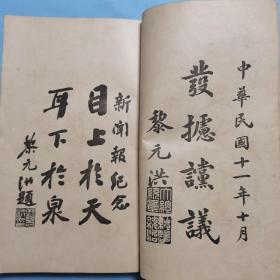 中華民國十一年十月
發攄讜議
黎元洪
新聞報紀念
目上於天
耳下於泉
蔡元培題